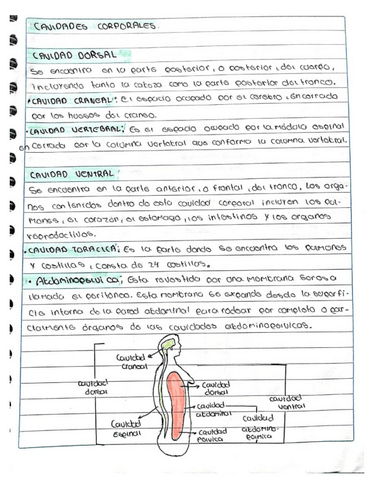 CAVIDADES CORPORALES.
CAVIDAD DORSAL
Se encuentra en la parte posterior, o posterior, del cuerpo,
Incluyendo tanto la cabeza como la parte posterior del tronco.
• CAVIDAD CRANEAL: El espacio ocupado por el cerebro, encerrado
por los huesos del craneo.
• CAVIDAD VERTEBRAL; Es el espacio ocupado por la médula espinal
encorrada por la columna vertebral que conforma la columna vertebral.
CAVIDAD VENTRAL
Se encuentra en la parte anterior, o frontal, del tronco. Los orga-
nos contenidos dentro de esta cavidad corporal incluyen los pul-
mones, el corazón, el estomago, los intestinos y los organos
reproductivos.
• CAVIDAD TORACICA; Es la parte donde se encuentra los pumones
y costillas, consta de 24 costillas.
• Abdominopelvica; Esta revestida por una membrana serosa
llamada el peritoneo. Esta membrana se expande desde la superfi-
cie interna de la pared abdominal para rodear por completo o par-
cialmente órganos de las cavidades abdominopelvicas.
cavidad
craneal
cavidad
dorsal
cavidad
espinal
cavidad
dorsal
cavidad
abdominal
cavidad
pelvica
cavidad
abdomino-
pelvica
cavidad
ventral